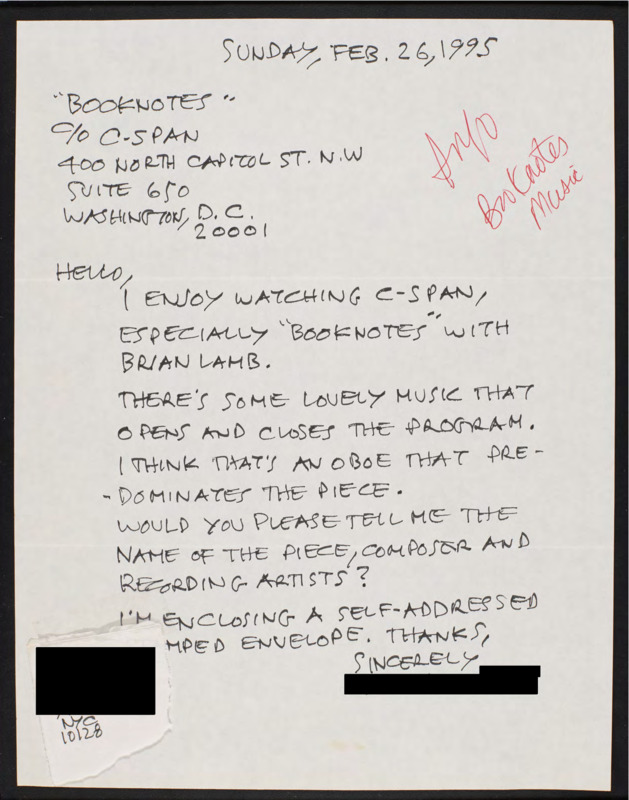 SUNDAY, FEB. 26, 1995
"BOOKNOTES"
c/o C-SPAN
400 NORTH CAPITOL ST. N.W
SUITE 650
WASHINGTON, D.C.
20001
Info
Booknotes
Music
HELLO,
I ENJOY WATCHING C-SPAN,
ESPECIALLY "BOOKNOTES" WITH
BRIAN LAMB.
THERE'S SOME LOVELY MUSIC THAT
OPENS AND CLOSES THE PROGRAM.
I THINK THAT'S AN OBOE THAT PRE-
-DOMINATES THE PIECE.
WOULD YOU PLEASE TELL ME THE
NAME OF THE PIECE, COMPOSER AND
RECORDING ARTISTS?
I'M ENCLOSING A SELF-ADDRESSED
MPED ENVELOPE. THANKS,
SINCERELY
NYC
10128